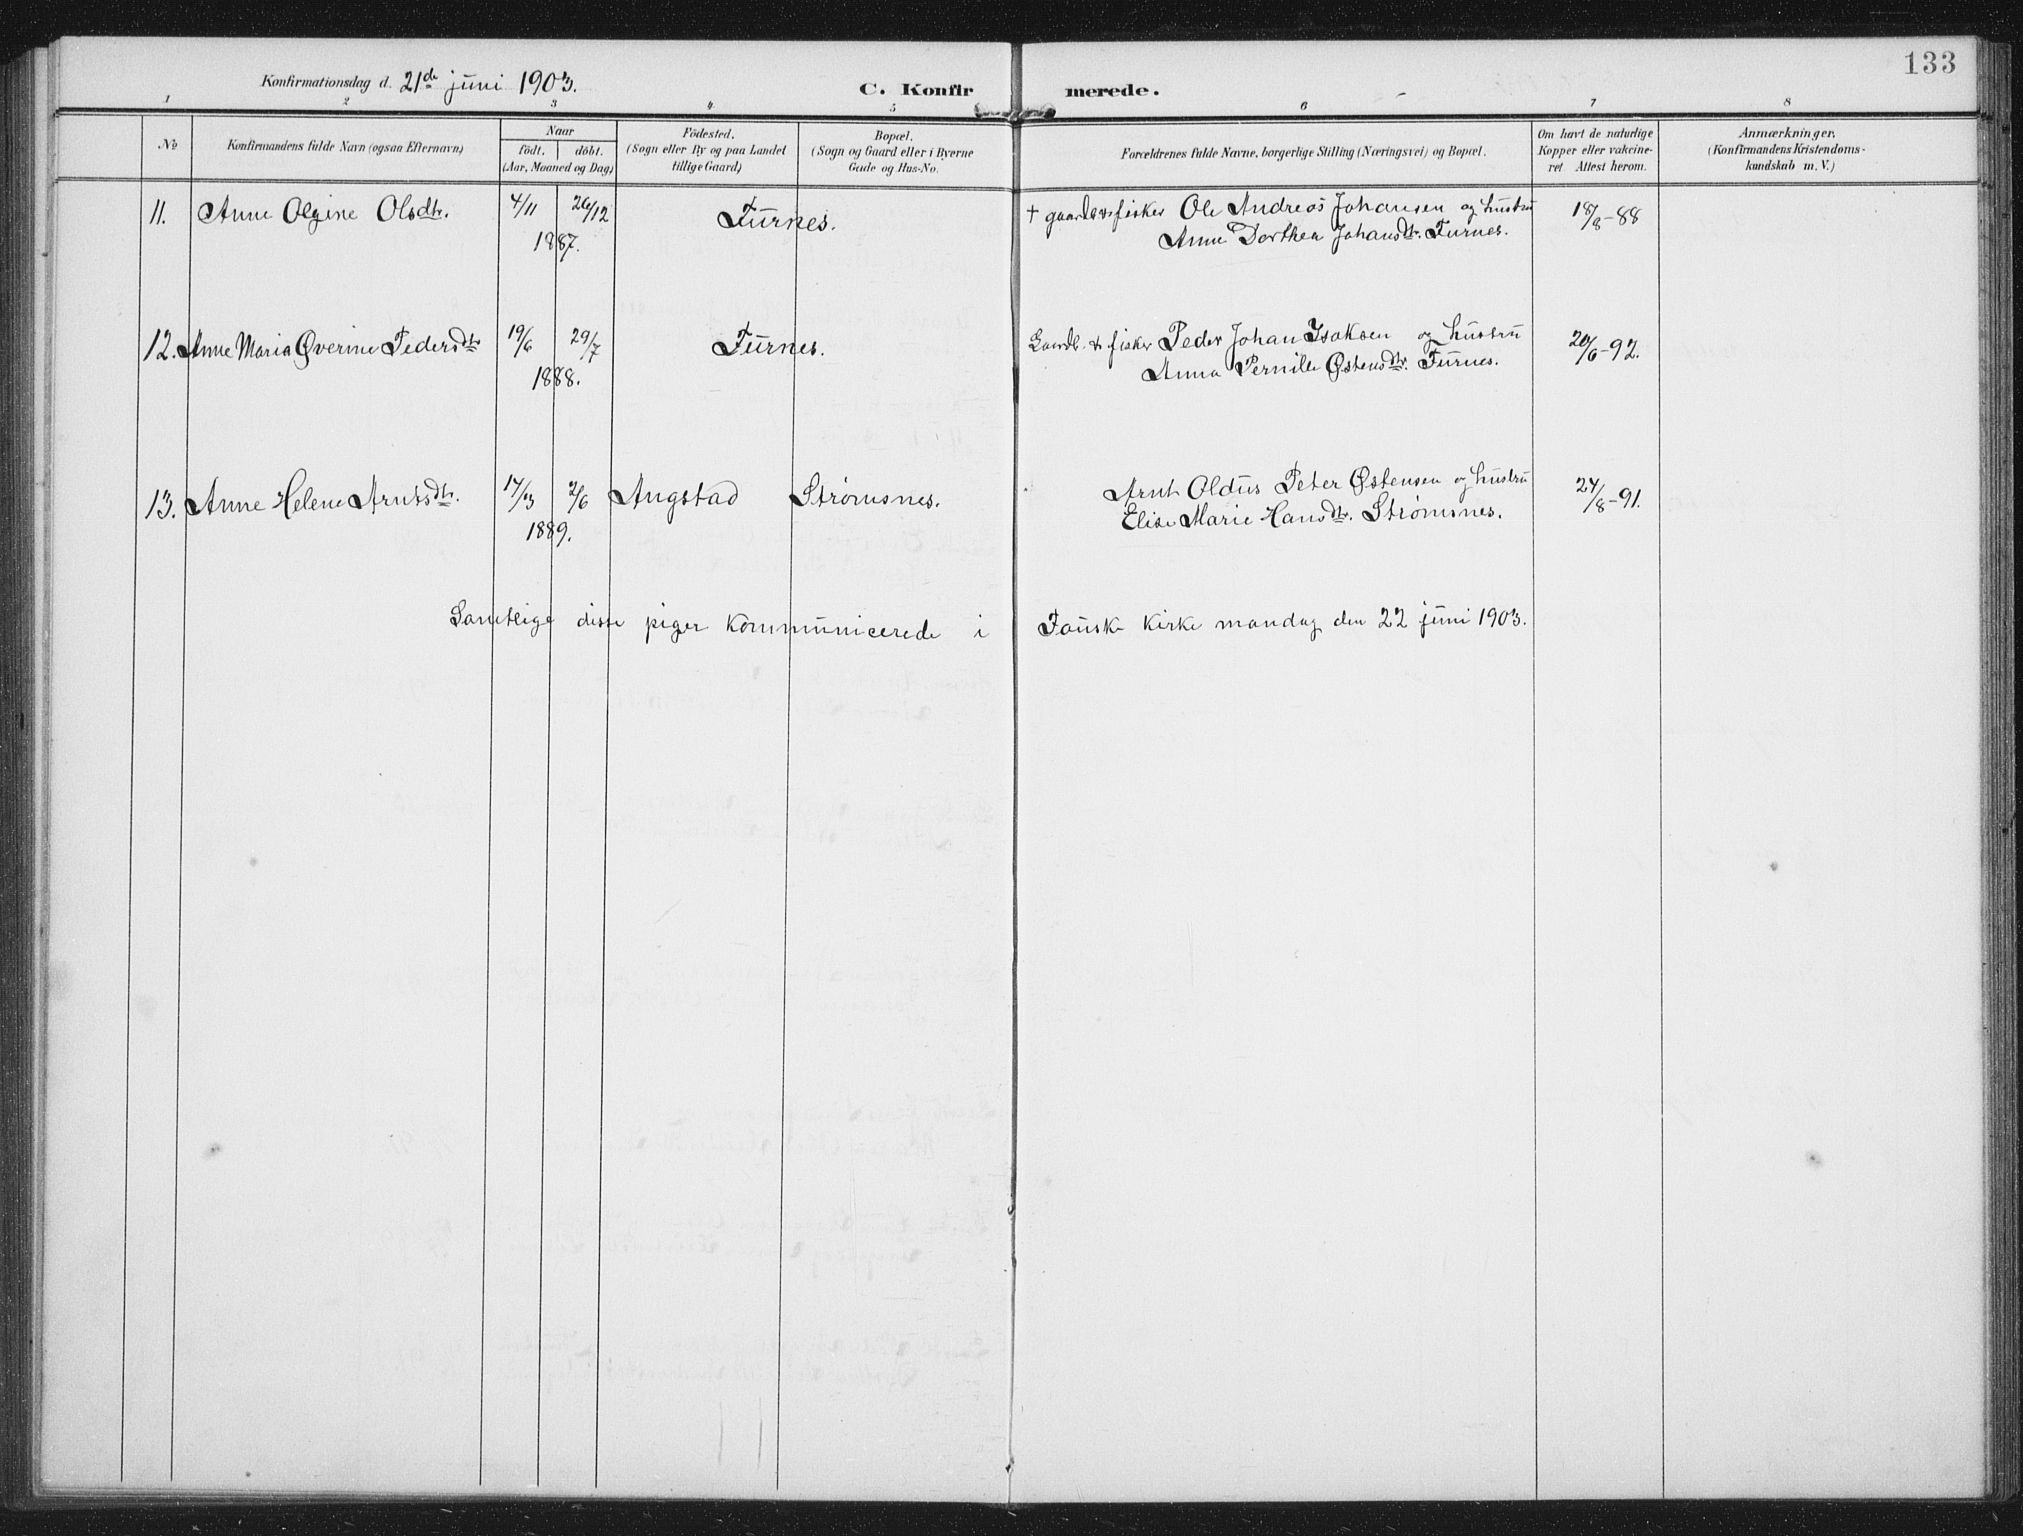 133
Konfirmationsdag d. 21de juni 1903.
C. Konfirmerede.
1 2 3 4 5 6 7 8
No
Konfirmandens fulde Navn (ogsaa Efternavn)
Naar
födt. döbt.
(Aar, Maaned og Dag)
Födested.
(Sogn eller By og paa Landet
tillige Gaard)
Bopæl.
(Sogn og Gaard eller i Byerne
Gade og Hus-No.
Forældrenes fulde Navne, borgerlige Stilling (Næringsvei) og Bopæl.
Om havt de naturlige
Kopper eller vakcine-
ret Attest herom.
Anmærkninger.
(Konfirmandens Kristendoms-
kundskab m. V.)
11. Anne Olgine Olsdtr. 4/11 26/12 Furnes. † gaardb. & fisker Ole Andreas Johansen og hustru 18/8-88
1887. Anne Dorthea Johansdtr. Furnes.
12. Anne Maria Øverine Pedersdtr 19/6 29/7 Furnes. Gaardb. & fisker Peder Johan Isaksen og hustru 20/6-92.
1888. Anna Pernille Østensdtr. Furnes.
13. Anne Helene Arntsdtr. 17/3 2/6 Angstad Strømsnes. Arnt Oldus Peter Østensen og hustru 24/8-91.
1889. Elise Marie Hansdtr. Strømsnes.
Samtlige disse piger kommunicerede i Fauske kirke mandag den 22 juni 1903.